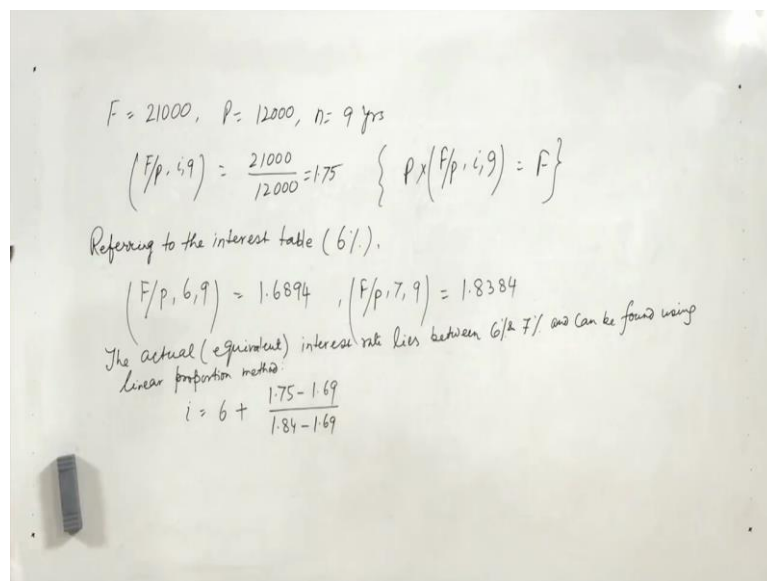 F = 21000, P = 12000, n = 9 yrs
(F/p, i, 9) = 21000/12000 = 1.75 { P x (F/p, i, 9) = F }
Referring to the interest table (6%),
(F/p, 6, 9) = 1.6894, (F/p, 7, 9) = 1.8384
The actual (equivalent) interest rate lies between 6% & 7% and can be found using
linear proportion method:
i = 6 + 1.75 - 1.69 / 1.84 - 1.69